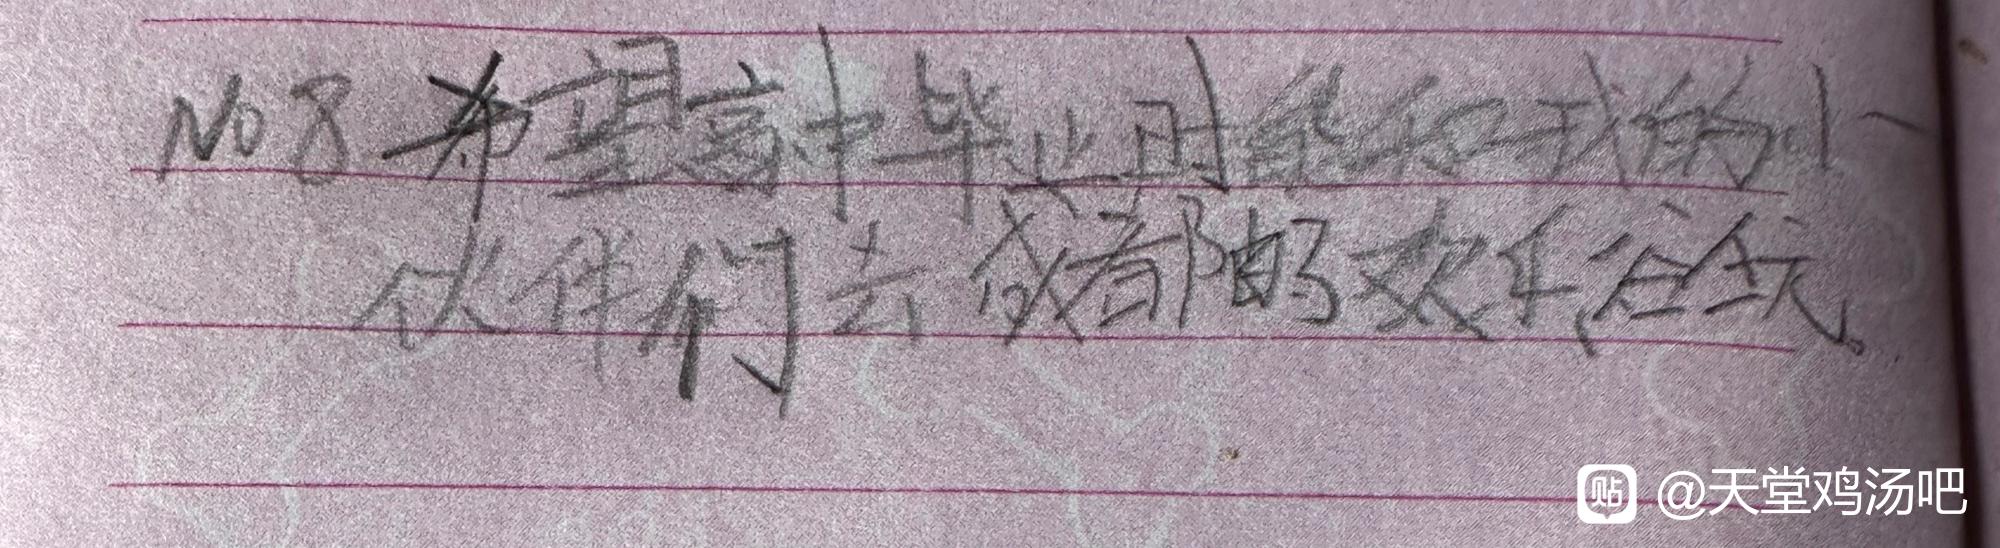 No 8 希望高中毕业时能和我的小
伙伴们去成都的欢乐谷玩。
贴 @天堂鸡汤吧